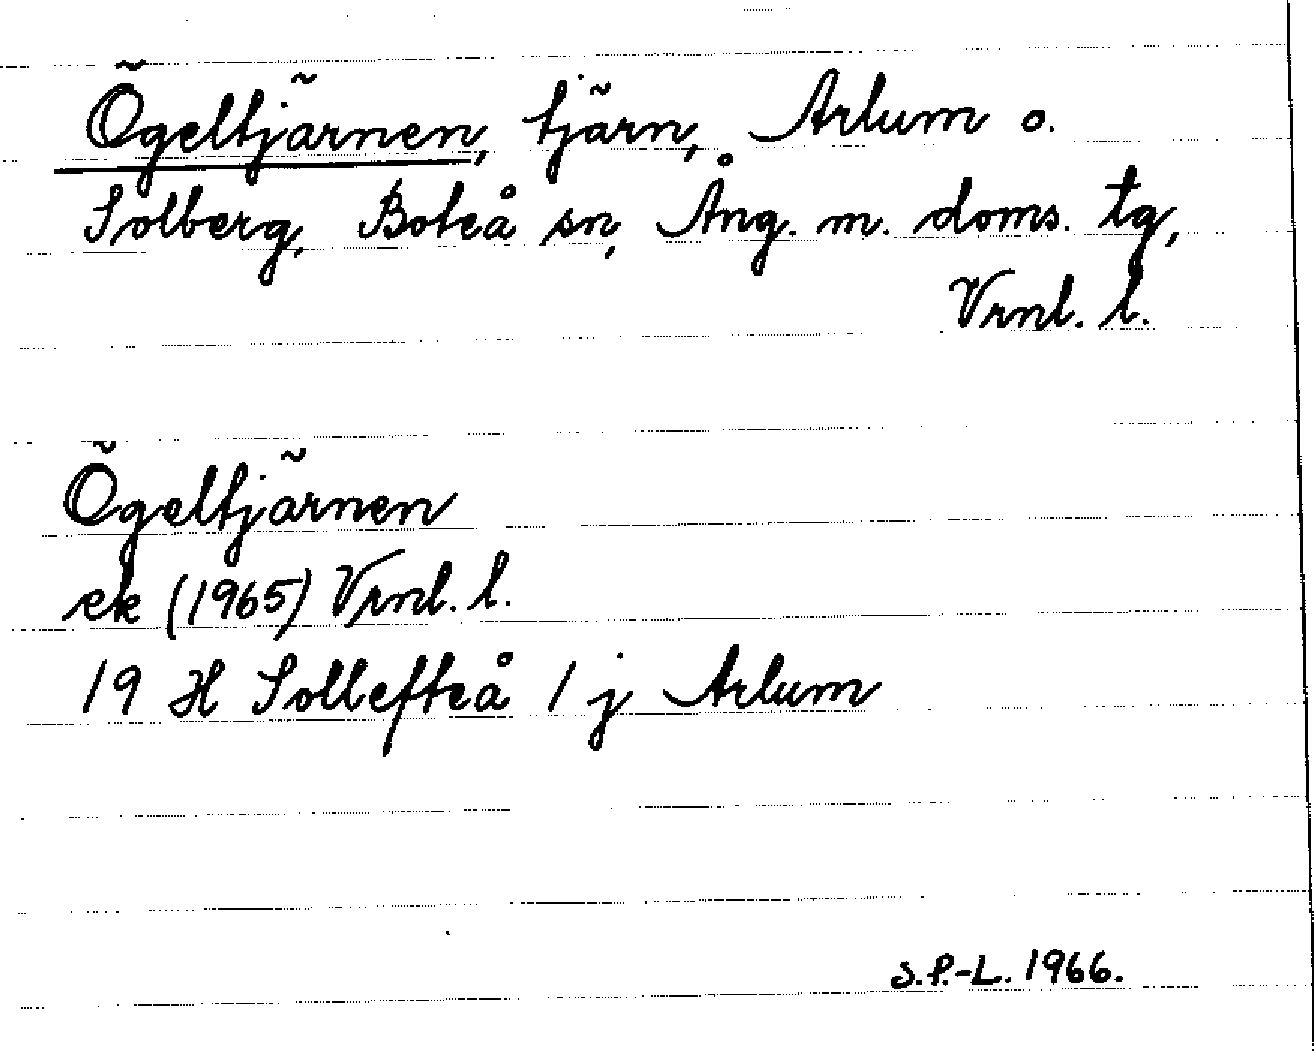 Ögeltjärnen, tjärn, Arlum o.
Solberg, Boteå sn, Ång. m. doms. tg,
Vrnl. l.
Ögeltjärnen
ek (1965) Vrnl. l.
19 H Sollefteå 1 j Arlum
S.P.-L. 1966.